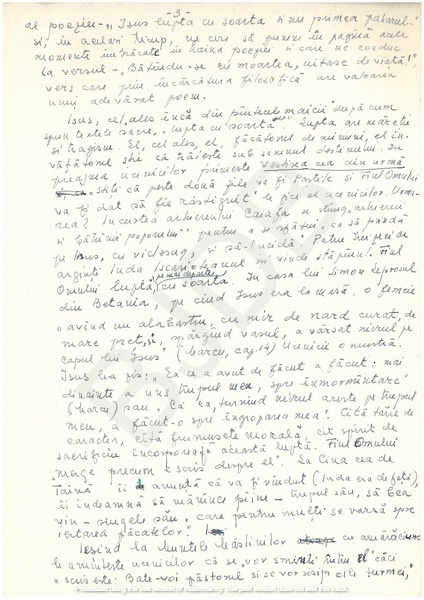 - 3 -
al poeziei - "Isus lupta cu soarta și nu primea paharul..."
și, în același timp, ne cere să punem în pagină acele
momente îmbrăcate în haina poeziei și care ne conduc
la versul - "Bătându-se cu moartea, uitase de viață!",
vers care prin încărcătura filosofică are valoarea
unui adevărat poem.
Isus, cel ales încă din pântecul maicii după cum
spun textele sacre, "lupta cu soarta". Lupta are măreție
și tragism. El, cel ales, el, făcătorul de minuni, el în-
vățătorul știe că trăiește sub semnul destinului. În
preajma ucenicilor primește vestirea cea din urmă
"știți că peste două zile va fi Paștile și Fiul Omului
va fi dat să fie răstignit" le zice el ucenicilor. Urma-
rea? În curtea arhierului Caiafa se strâng "arhierei
și bătrânii poporului" pentru "a se sfătui" "ca să prindă
pe Isus, cu vicleșug, și să-l ucidă". Pentru treizeci de
arginți Iuda Iscarioteanul își vinde stăpânul. Fiul
Omului luptă, pe mai departe, cu soarta. În casa lui Simon Leprosul
din Betania, pe când Isus era la masă, o femeie
"având un alabastru, cu mir de nard curat, de
mare preț, și, spărgând vasul, a vărsat mirul pe
capul lui Isus" (Marcu, cap. 14) Ucenicii o mustră.
Isus le-a zis: "Ea ce a avut de făcut a făcut: mai
dinainte a uns trupul meu, spre înmormântare"
(Marcu) sau "Că ea, turnând mirul acesta pe trupul
meu, a făcut-o spre îngroparea mea". Câtă tărie de
caracter, câtă frumusețe morală, cât spirit de
sacrificiu încorporează această luptă. Fiul Omului
"merge precum e scris despre el". La Cina cea de
Taină îi anunță că va fi vândut (Iuda era de față),
îi îndeamnă să mănânce pâine - trupul său, să bea
vin - sângele său "care pentru mulți se varsă spre
iertarea păcatelor".
Ieșind la Muntele Măslinilor cu amărăciune
le amintește ucenicilor că se "vor sminti întru el" căci
"scris este: Bate-voi păstorul și se vor risipi oile turmei,"